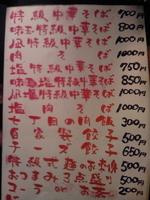 特級中華そば 700円
味玉特級中華そば 800円
特級中華そば 1000円
肉そば 1000円
塩特級中華そば 750円
味玉塩特級中華そば 850円
塩特級中華そば 1000円
塩肉そば 1000円
七丁目の肉飯 300円
自家製餃子 500円
チーズ餃子 650円
特級 500円
おつまみ3点盛り 500円
コーラorお茶 200円